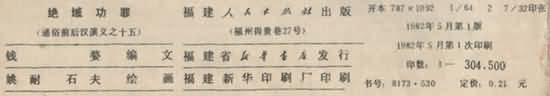 绝域功罪
(通俗前后汉演义之十五)
钱婺编文
姚耐石夫绘画
福建人民出版社出版
(福州得贵巷27号)
福建省新华书店发行
福建新华印刷厂印刷
开本 787×1092 1/64 2 7/32印张
1982年5月第1版
1982年5月第1次印刷
印数:1—304,500
书号:8173·530 定价:0.21元